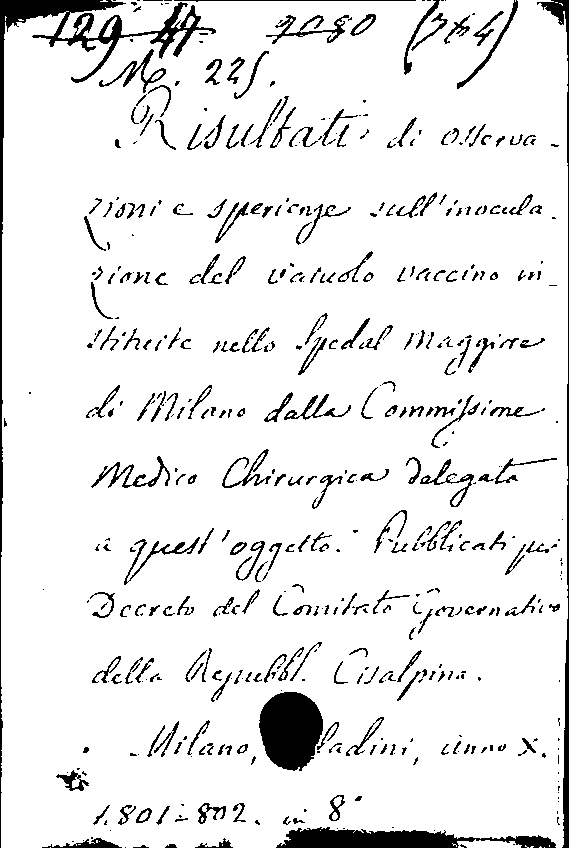 129 47 2080 (784)
M. 225.
Risultati di osserva-
zioni e sperienze sull'inocula-
zione del vaiuolo vaccino in-
stituite nello Spedal Maggiore
di Milano dalla Commissione
Medico Chirurgica delegata
a quest'oggetto. Pubblicati per
Decreto del Comitato Governativo
della Repubbl. Cisalpina.
Milano, ladini, anno X.
1801-802. in 8°